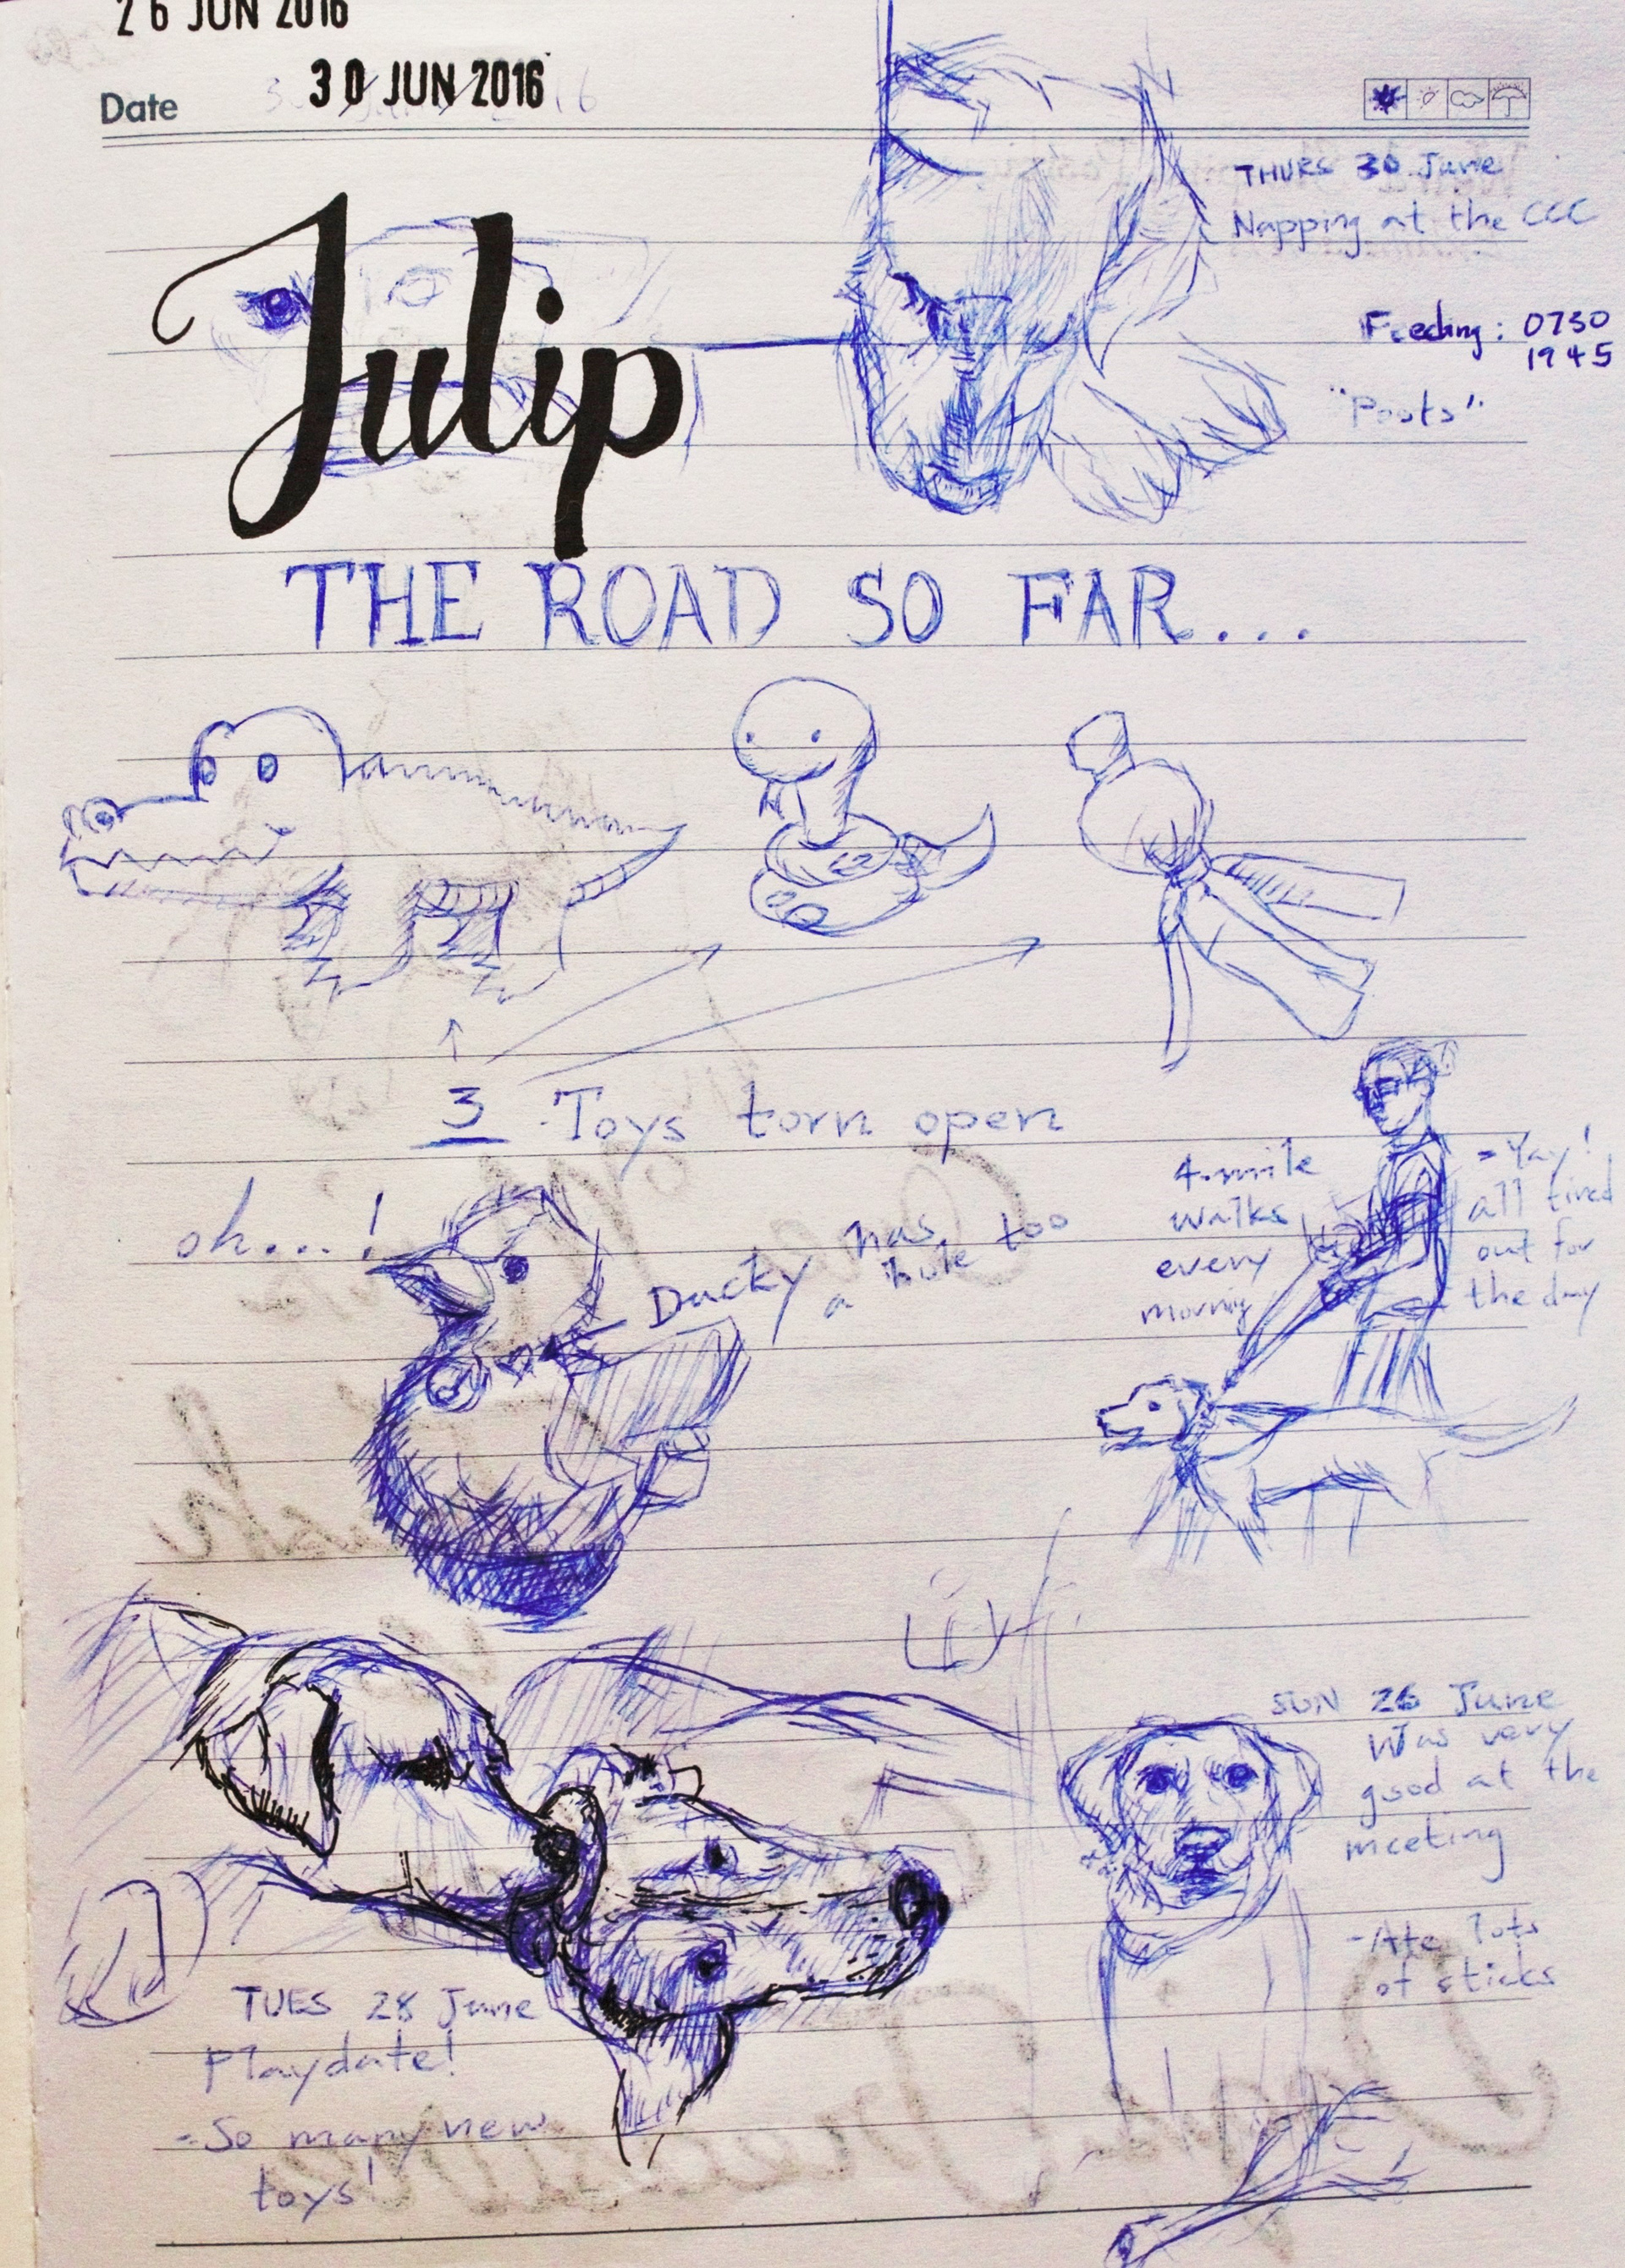 26 JUN 2016
Date 30 JUN 2016
THURS 30 June
Napping at the CCC
Julip
Feeding: 0730
1945
THE ROAD SO FAR...
3 Toys torn open
oh...!
Ducky has a hole too
4-mile
walks
every
morning
= Yay!
all tired
out for
the day
SUN 26 June
Was very
good at the
meeting
-Ate lots
of sticks
TUES 28 June
Playdate!
- So many new
toys!